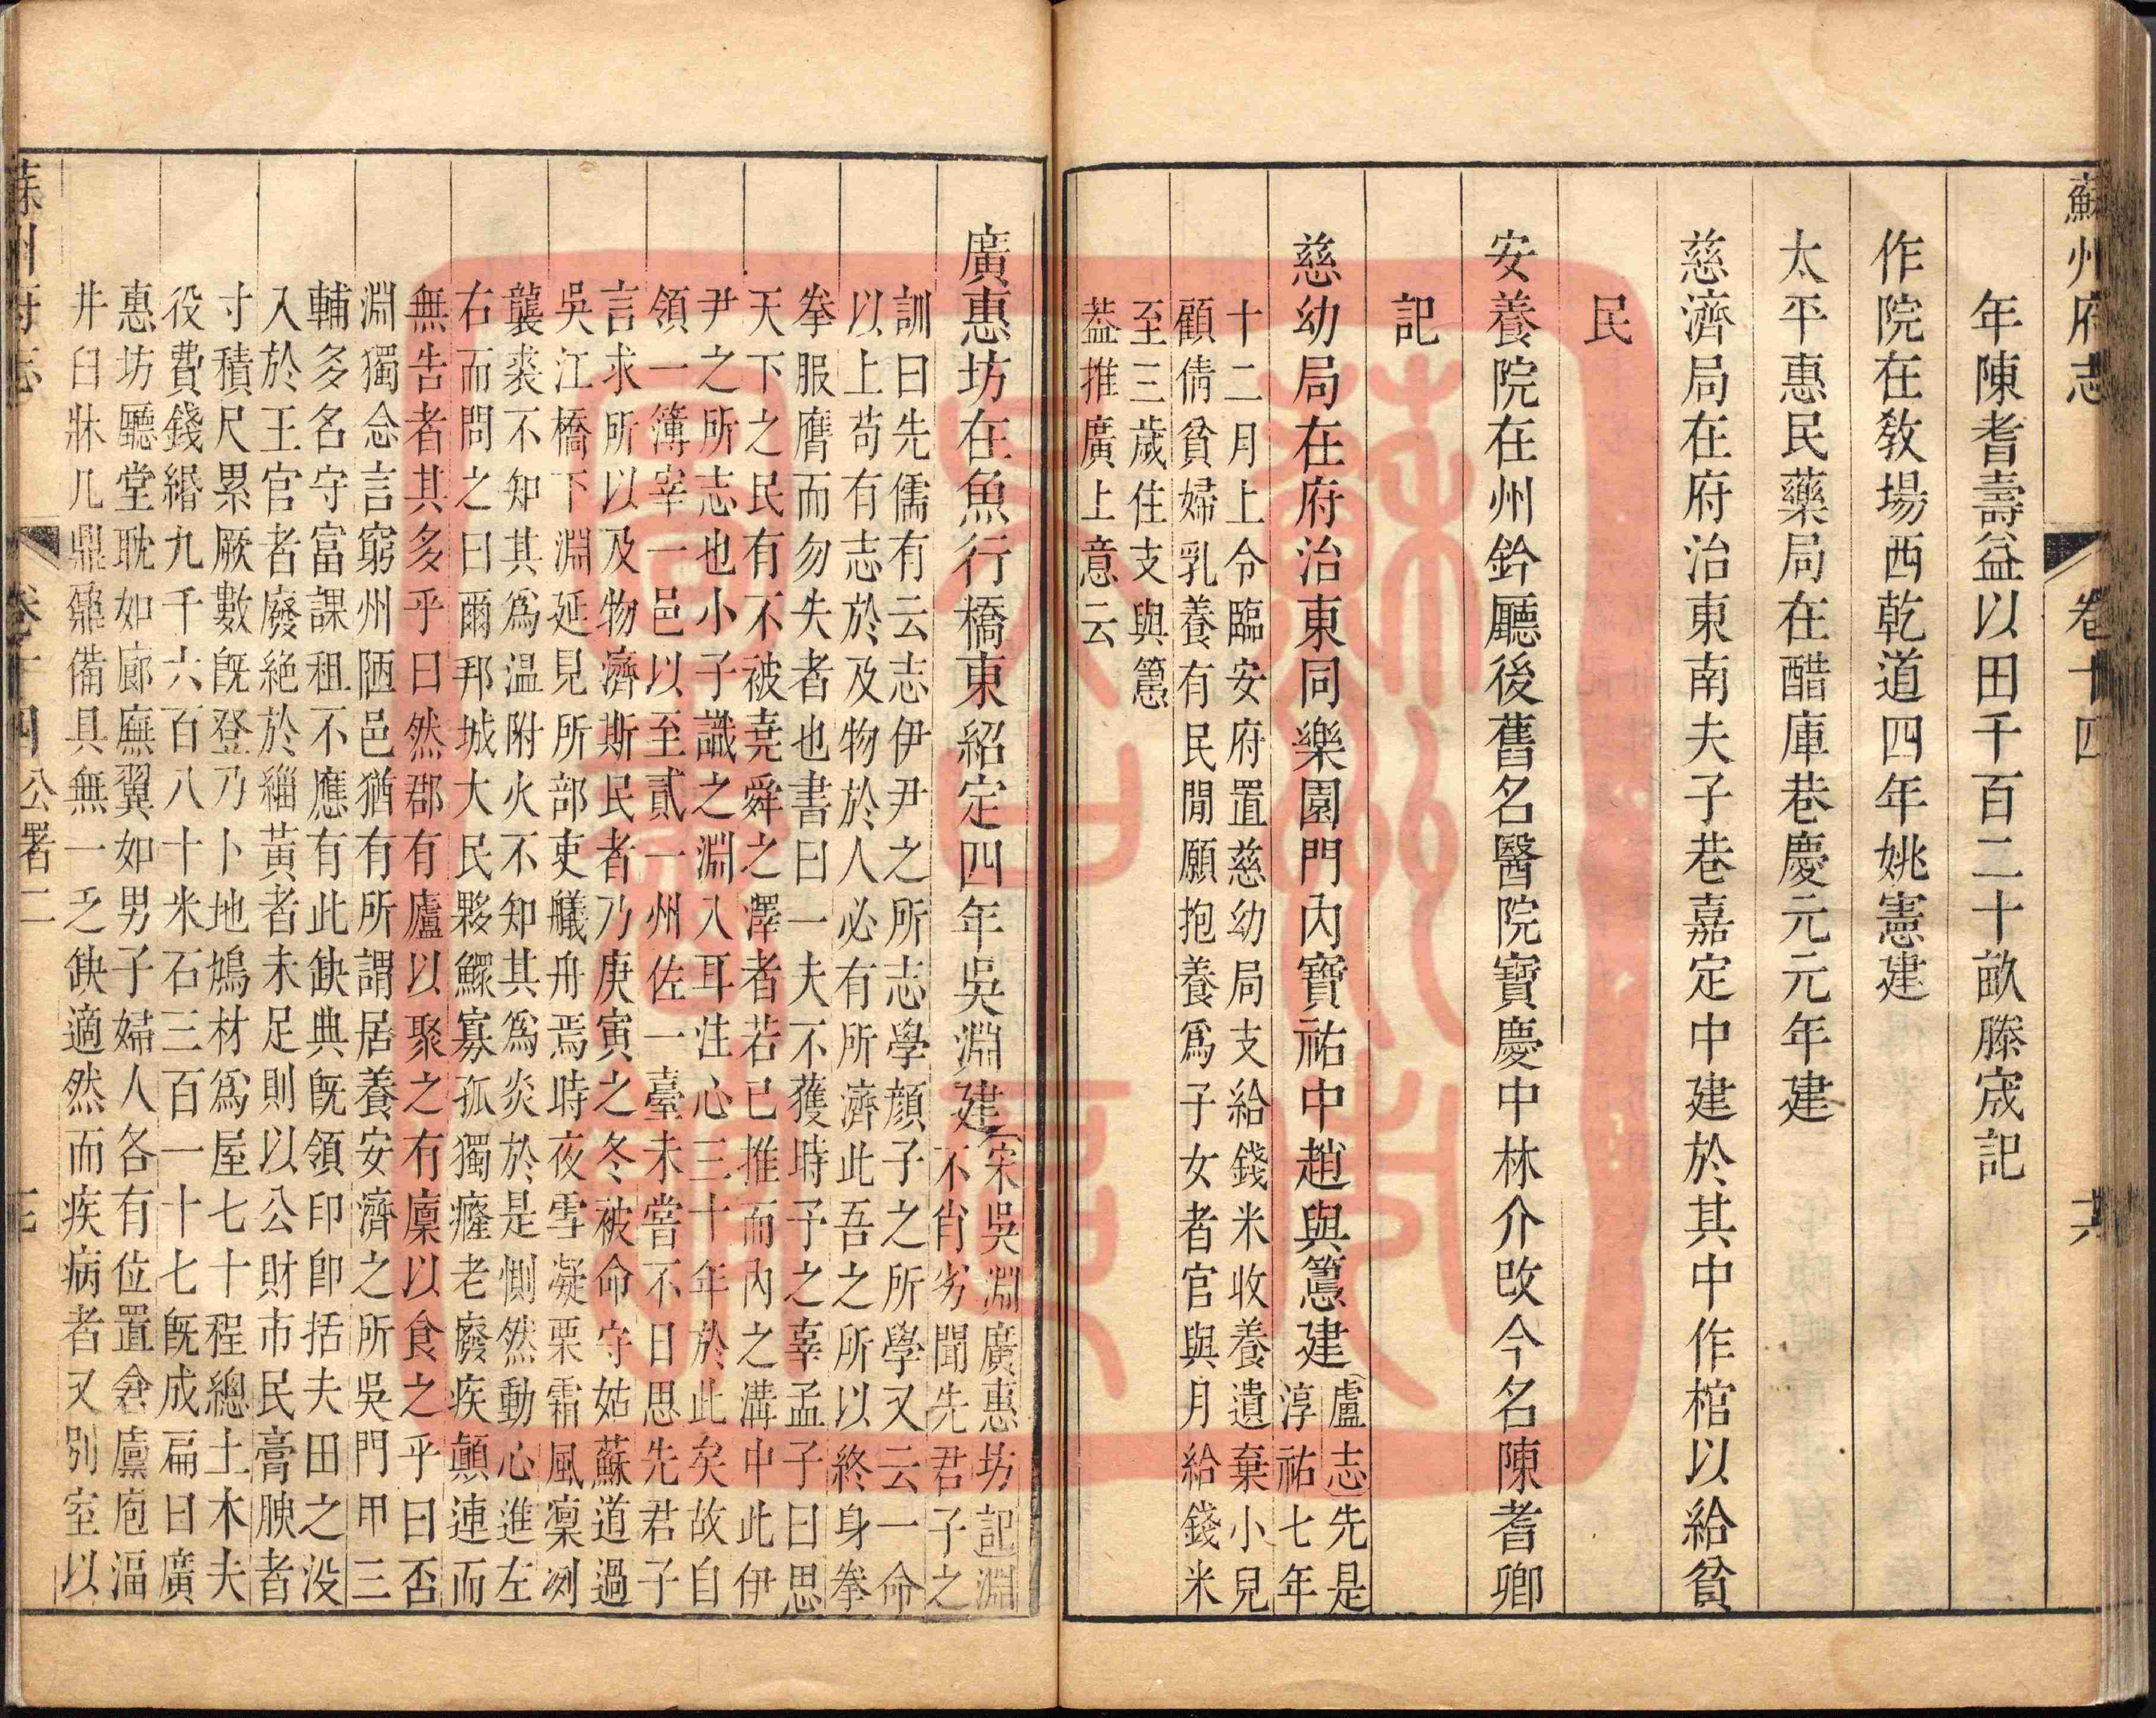 蘇州府志 卷十四 六
年陳耆壽益以田千百二十畝滕宬記
作院在敎場西乾道四年姚憲建
太平惠民藥局在醋庫巷慶元元年建
慈濟局在府治東南夫子巷嘉定中建於其中作棺以給貧
民
安養院在州鈐廳後舊名醫院寶慶中林介改今名陳耆卿
記
慈幼局在府治東同樂園門內寶祐中趙與𥲅建
盧志先是
淳祐七年
十二月上令臨安府置慈幼局支給錢米收養遺棄小兒
顧倩貧婦乳養有民間願抱養爲子女者官與月給錢米
至三歲住支與𥲅
葢推廣上意云
廣惠坊在魚行橋東紹定四年吳淵建
宋吳淵廣惠坊記淵
不肖劣聞先君子之
訓曰先儒有云志伊尹之所志學顏子之所學又云一命
以上苟有志於及物於人必有所濟此吾之所以終身拳
拳服膺而勿失者也書曰一夫不獲時予之辜孟子曰思
天下之民有不被堯舜之澤者若已推而內之溝中此伊
尹之所志也小子識之淵入耳注心三十年於此矣故自
領一簿宰一邑以至貳一州佐一臺未嘗不日思先君子
言求所以及物濟斯民者乃庚寅之冬被命守姑蘇道過
吳江橋下淵延見所部吏艤舟焉時夜雪凝栗霜風凜冽
襲裘不知其爲温附火不知其爲炎於是惻然動心進左
右而問之曰爾邦城大民夥鰥寡孤獨癃老廢疾顚連而
無告者其多乎曰然郡有廬以聚之有廩以食之乎曰否
淵獨念言窮州陋邑猶有所謂居養安濟之所吳門甲三
輔多名守富課租不應有此缺典旣領印卽括夫田之没
入於王官者廢絶於緇黃者未足則以公財市民膏腴者
寸積尺累厥數旣登乃卜地鳩材爲屋七十程總土木夫
役費錢緡九千六百八十米石三百一十七旣成扁曰廣
惠坊廳堂耽如廊廡翼如男子婦人各有位置倉廪庖湢
井臼牀几鼎鼐備具無一乏缺適然而疾病者又別室以
蘇州府志 卷十四 公署二